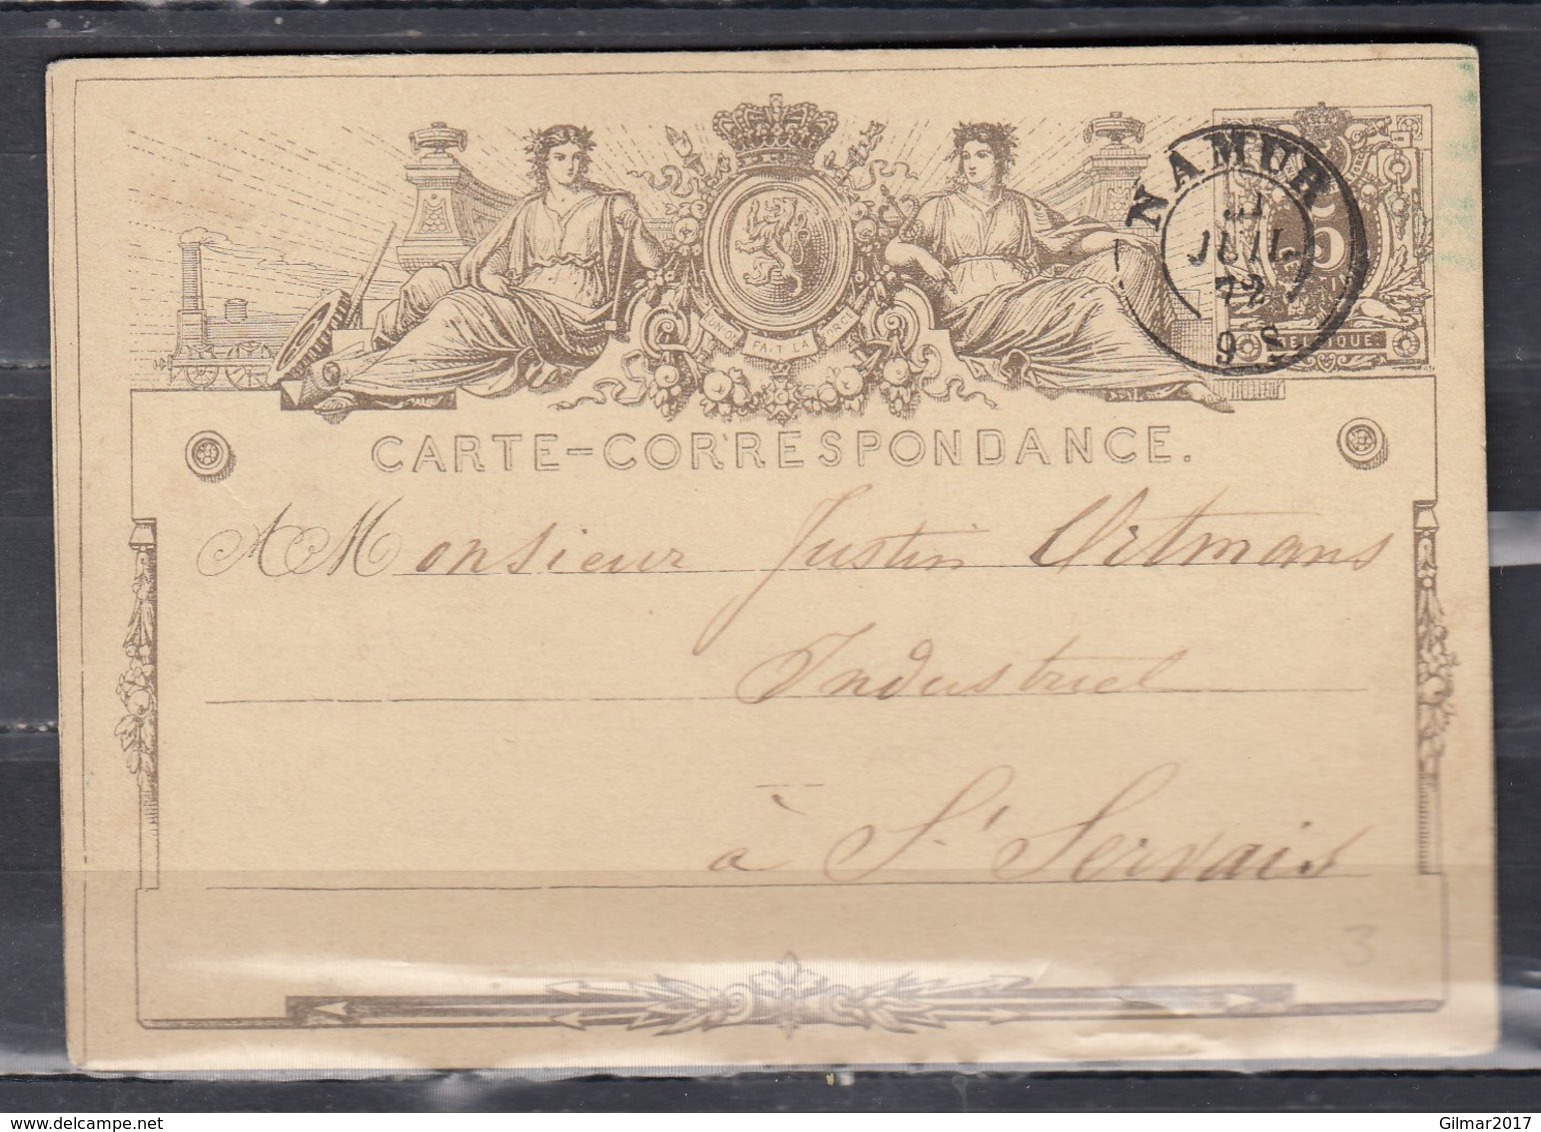 NAMUR
JUIL
72
9 S
5
BELGIQUE
FAIT LA
CARTE-CORRESPONDANCE.
A Monsieur Justin Ortmans
Industriel
à St Servais
3
Gilmar2017